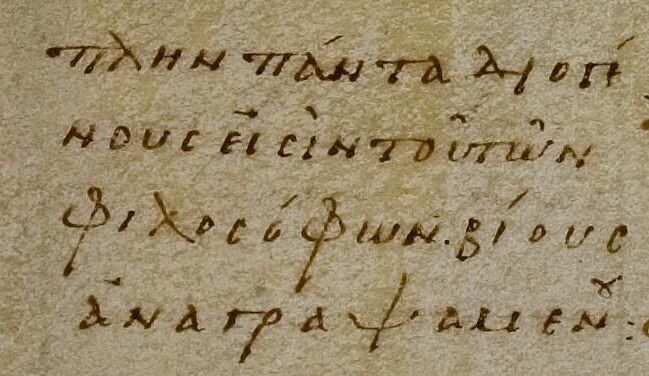 πλην πάντα διογέ
νους εἰσὶν τοῦ τῶν
φιλοσόφων. βίους
ἀναγραψαμενου: